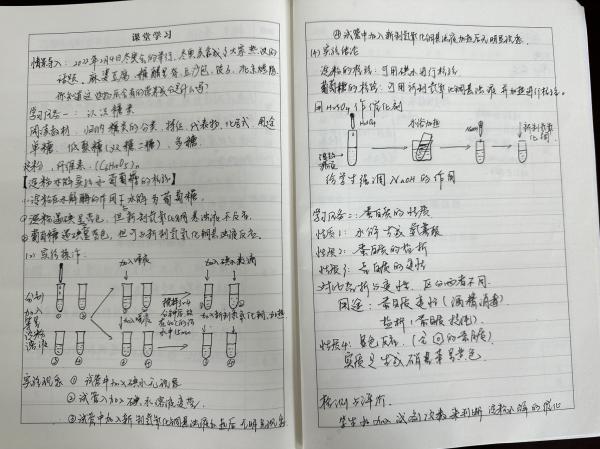 课堂学习
情境导入：2022年2月4日冬奥会的举行，冬奥美食成了大家热议的
话题，麻婆豆腐、豆沙包、饺子、北京烤鸭
你知道这些物质含有的营养成分是什么吗？
学习任务一：认识糖类
阅读教材，归纳糖类的分类、特征、代表物、化学式、用途
单糖、低聚糖（以双糖二糖）、多糖
淀粉、纤维素：(C6H10O5)n
【淀粉水解实验和葡萄糖的检验】
淀粉在水解酶的作用下水解为葡萄糖。
淀粉遇碘呈蓝色，但新制氢氧化铜悬浊液不反应。
葡萄糖遇碘呈色，但可与新制氢氧化铜悬浊液反应。
(2) 实验操作：
加入唾液
加入碘水滴
分别
加入
等量
淀粉
溶液
① ②
③ ④
加入唾液
搅拌
加入新制氢氧化铜，加热
实验现象 ① 试管中加入碘水无现象
② 试管入加入碘水溶液变蓝。
③ 试管中加入新制氢氧化铜悬浊液加热后无明显现象
④ 试管中加入新制氢氧化铜悬浊液加热后无明显现象.
(4) 实验结论
淀粉的检验：可用碘水进行检验
葡萄糖的检验：可用新制氢氧化铜悬浊液并加热进行检验。
用H2SO4作催化剂
H2SO4
水浴加热
NaOH
新制氢氧
化铜
淀粉
溶液
给学生强调NaOH的作用
学习任务二：蛋白质的性质
性质1：水解生成氨基酸
性质2：蛋白质的盐析
性质3：蛋白质的变性
对比盐析与变性，区分两者不同.
用途：蛋白质变性（酒精消毒）
盐析（蛋白质提纯）
性质4：显色反应.（含的蛋白质）
实质是生成硝基苯显黄色.
检测与评价.